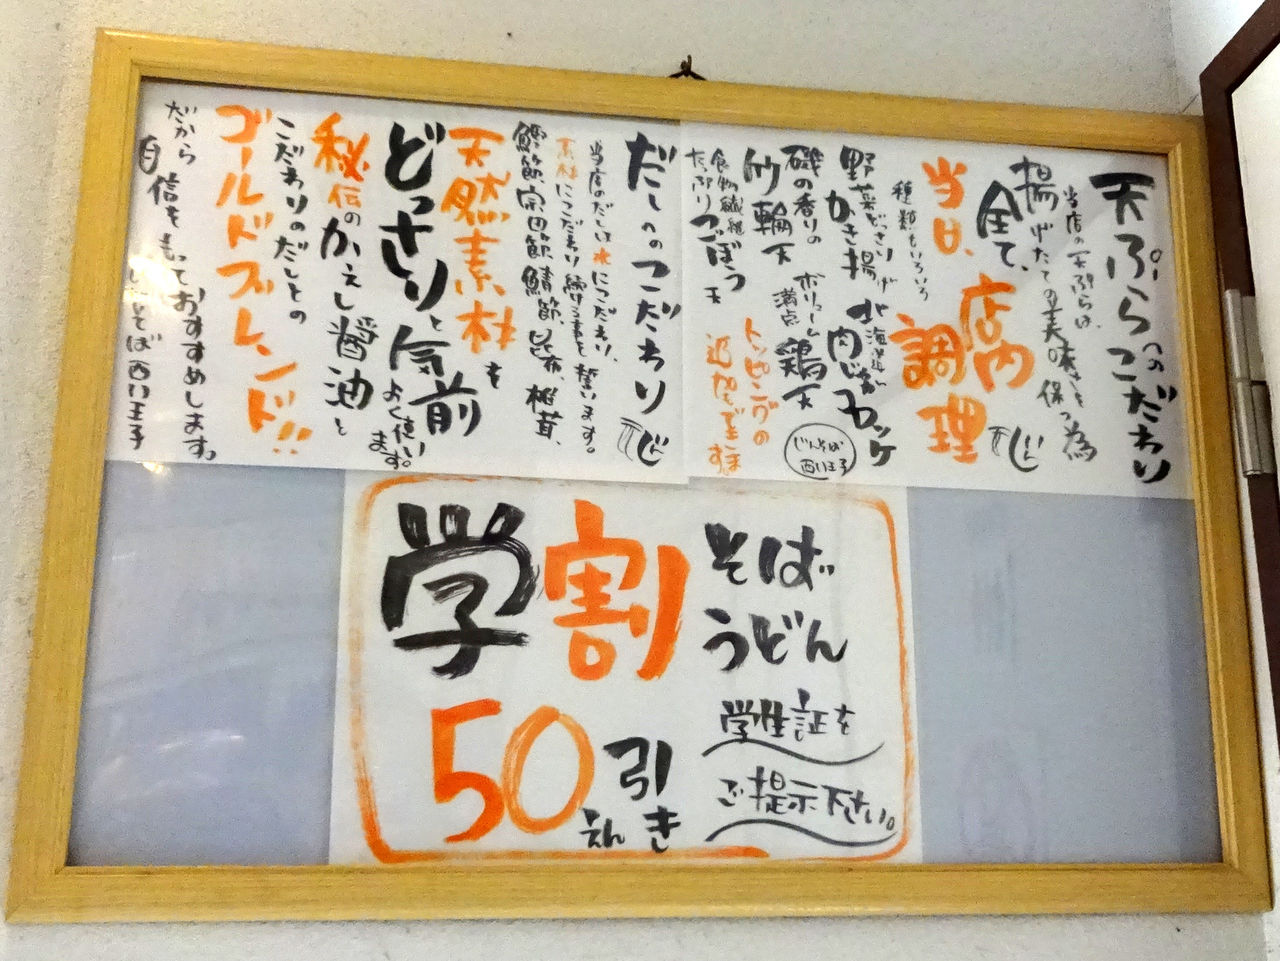 天ぷらへのこだわり
当店の天ぷらは、
揚げたての美味さを保つ為
全て、
当日、店内調理
種類もいろいろ
野菜どっさりかき揚げ
北海道肉じゃがコロッケ
磯の香りの竹輪天
ボリューム満点鶏天
食物繊維たっぷりごぼう天
トッピングの追加もできます
じんそば
西八王子
だしへのこだわり
当店のだしは水にこだわり、
素材にこだわり続ける事を誓います。
鰹節、宗田節、鯖節、昆布、椎茸、
天然素材を
どっさりと気前よく使います。
秘伝のかえし醤油と
こだわりのだしとの
ゴールドブレンド!!
だから
自信をもっておすすめします。
そば西八王子
学割
50えん引き
そば
うどん
学生証を
ご提示下さい。